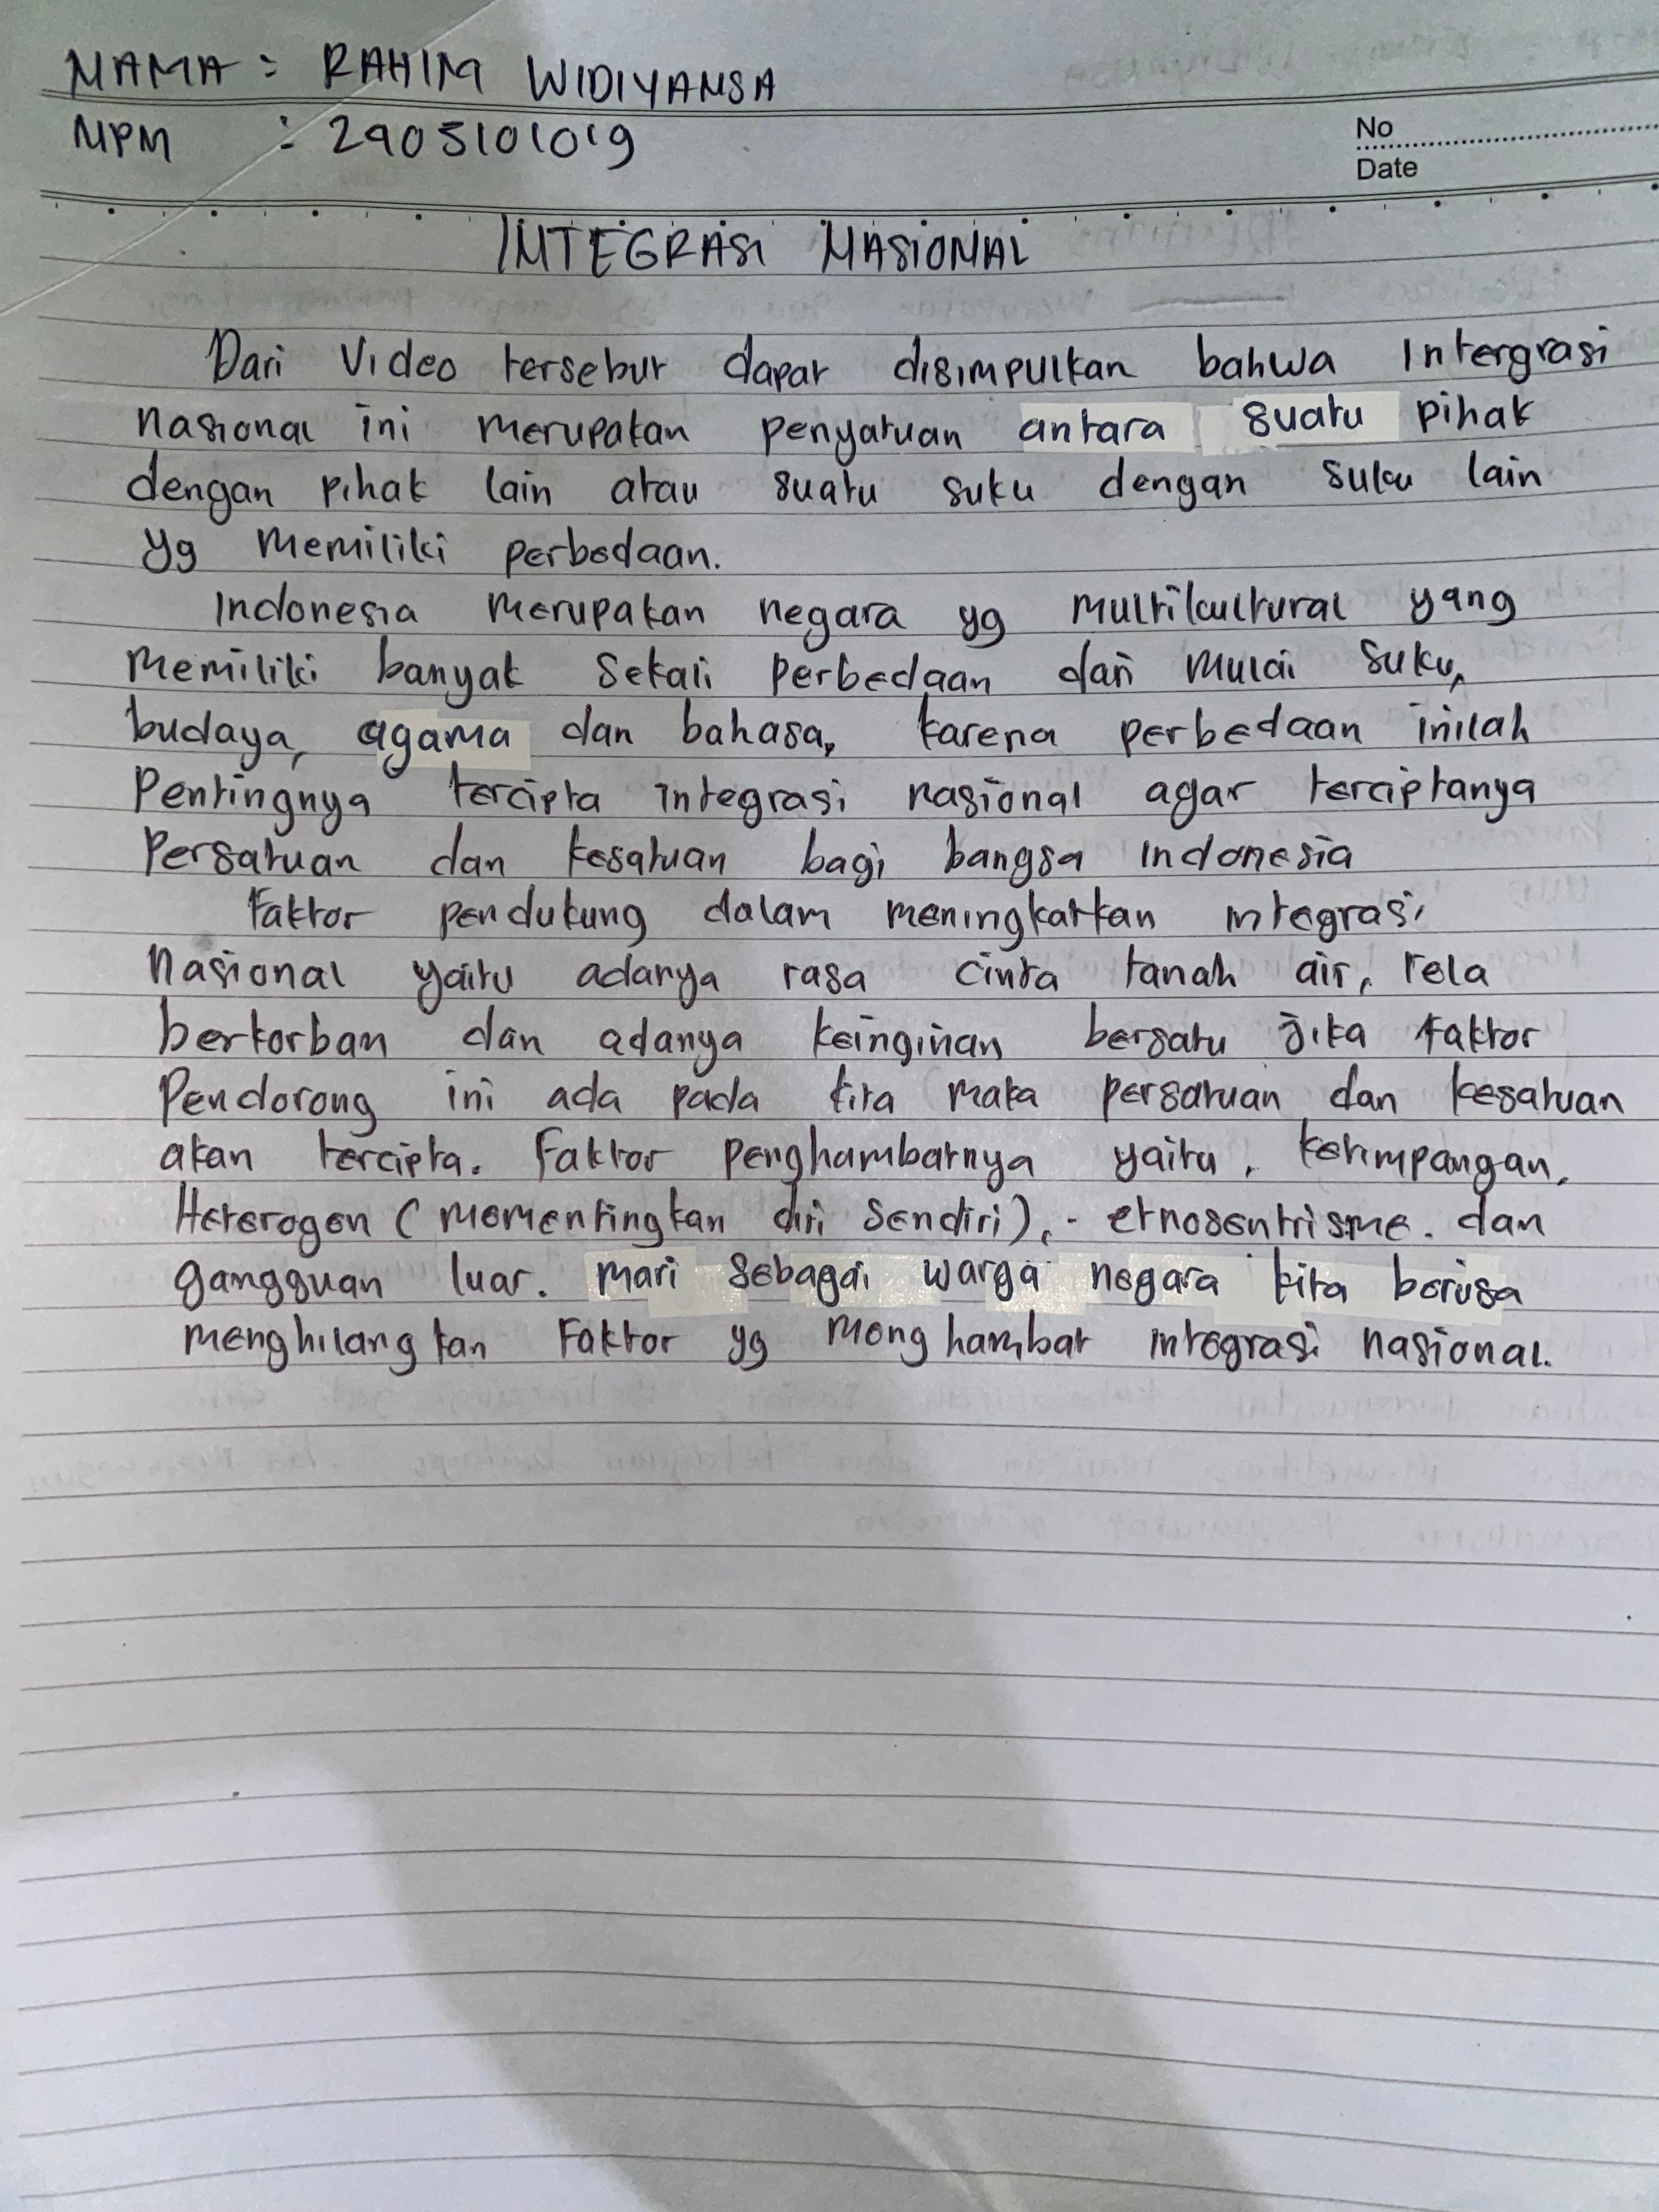 NAMA : RAHIM WIDIYANSA
NPM : 2905101019
No
Date
INTEGRASI NASIONAL
Dari Video tersebut dapat disimpulkan bahwa Intergrasi
nasional ini merupakan penyatuan antara suatu pihak
dengan pihak lain atau suatu suku dengan suku lain
yg memiliki perbedaan.
Indonesia merupakan negara yg multikultural yang
memiliki banyak sekali perbedaan dari mulai suku,
budaya, agama dan bahasa, karena perbedaan inilah
Pentingnya tercipta integrasi nasional agar terciptanya
Persatuan dan kesatuan bagi bangsa indonesia
Faktor pendukung dalam meningkatkan integrasi
Nasional yaitu adanya rasa cinta tanah air, rela
berkorban dan adanya keinginan bersatu jika faktor
Pendorong ini ada pada kita maka persatuan dan kesatuan
akan tercipta. Faktor penghambatnya yaitu, ketimpangan,
Heterogen (mementingkan diri sendiri), - etnosentrisme. dan
gangguan luar. mari sebagai warga negara kita berusa
menghilangkan Faktor yg menghambat integrasi nasional.